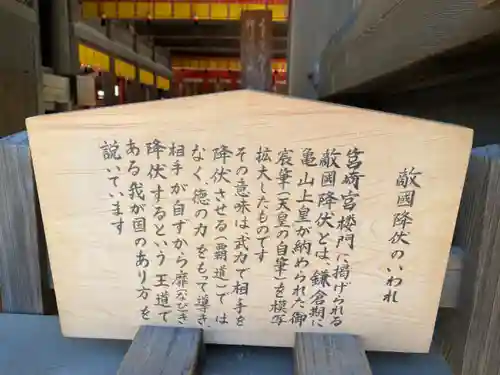 敵國降伏のいわれ
筥崎宮楼門に掲げられる
敵國降伏とは、鎌倉期に
亀山上皇が納められた御
宸筆(天皇の自筆)を模写
拡大したものです
その意味は、武力で相手を
降伏させる(覇道)では
なく、徳の力をもって導き、
相手が自ずから靡(なび)き
降伏するという王道で
ある我が国のあり方を
説いています